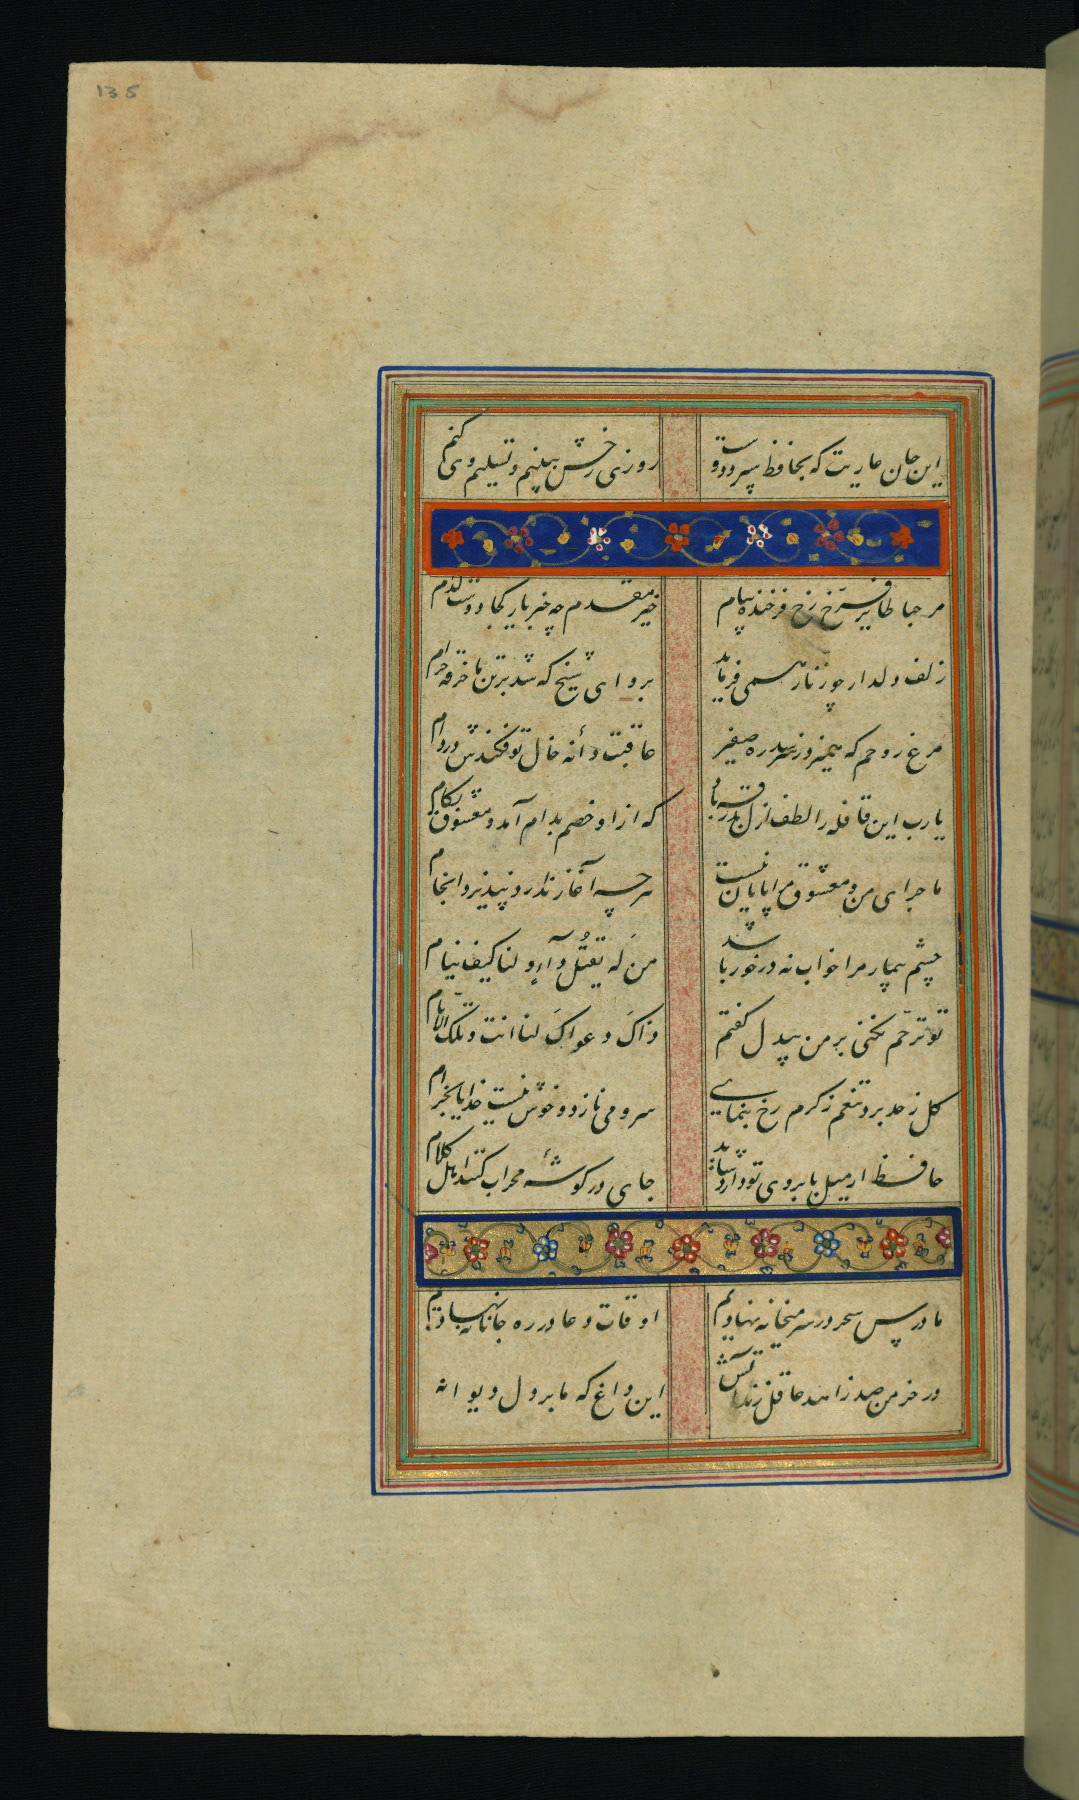 135
این جان عاریت که بحافظ سپرد دوست روزی رخش ببینم و تسلیم وی کنم
مرحبا طایر فرّخ رخ فرخنده پیام خیر مقدم چه خبر یار کجا دوست کدام
یارب این قافله را لطف ازل بدرقه باد که ازو خصم بدام آمد و معشوق بکام
ماجرای من و معشوق مرا پایان نیست هرچه آغاز ندارد نپذیرد انجام
زلف دلدار چو زنار همی فرماید برو ای شیخ که شد بر تن ما خرقه حرام
مرغ روحم که همیزد ز سر سدره صفیر عاقبت دانه خال تو فکندش در دام
چشم بیمار مرا خواب نه درخور باشد من له یقتل داء و لنا کیف ینام
تو ترحّم نکنی بر من بیدل گفتم ذاک دعواک لنا انت و تلک الایّام
گل ز حد برد تنعم ز کرم رخ بنمای سرو می نازد و خوش نیست خدا را بخرام
حافظ ار میل بابروی تو دارد شاید جای در گوشهٔ محراب کنند اهل کلام
ما درس سحر در سر میخانه نهادیم اوقات دعا در ره جانانه نهادیم
در خرمن صد زاهد عاقل زند آتش این داغ که ما بر دل دیوانه